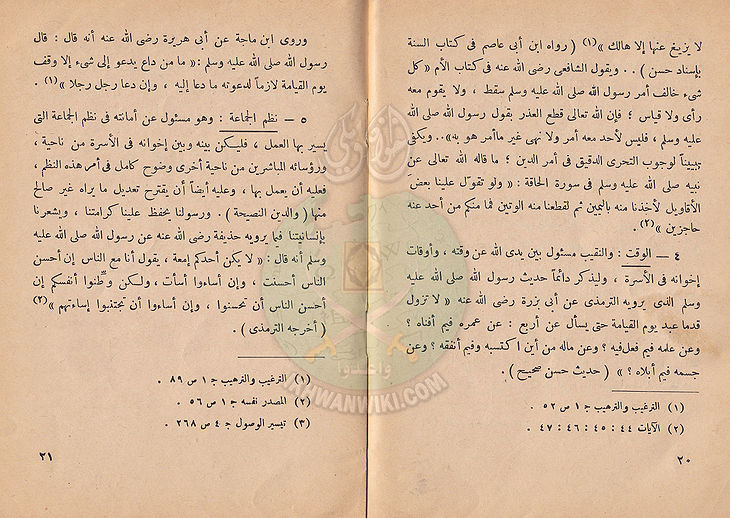 لا يزيغ عنها إلا هالك » (١) ( رواه ابن أبى عاصم فى كتاب السنة
بإسناد حسن ) . . ويقول الشافعى رضى الله عنه فى كتاب الأم « كل
شىء خالف أمر رسول الله صلى الله عليه وسلم سقط ، ولا يقوم معه
رأى ولا قياس ؛ فإن الله تعالى قطع العذر بقول رسول الله صلى الله
عليه وسلم ، فليس لأحد معه أمر ولا نهى غير ما أمر هو به » . . ويكفى
تبييناً لوجوب التحرى الدقيق فى أمر الدين ؛ ما قاله الله تعالى عن
نبيه صلى الله عليه وسلم فى سورة الحاقة : « ولو تقوّل علينا بعضَ
الأقاويل لأخذنا منه باليمين ثم لقطعنا منه الوتين فما منكم من أحد عنه
حاجزين » (٢) .
٤ — الوقت : والنقيب مسئول بين يدى الله عن وقته ، وأوقات
إخوانه فى الأسرة ، وليذكر دائماً حديث رسول الله صلى الله عليه
وسلم الذى يرويه الترمذى عن أبى برزة رضى الله عنه « لا تزول
قدما عبد يوم القيامة حتى يسأل عن أربع : عن عمره فيم أفناه ؟
وعن علمه فيم فعل فيه ؟ وعن ماله من أين اكتسبه وفيم أنفقه ؟ وعن
جسمه فيم أبلاه ؟ » ( حديث حسن صحيح ) .
(١) الترغيب والترهيب ج ١ ص ٥٢ .
(٢) الآيات ٤٤ ؛ ٤٥ ؛ ٤٦ ؛ ٤٧ .
٢٠
وروى ابن ماجة عن أبى هريرة رضى الله عنه أنه قال : قال
رسول الله صلى الله عليه وسلم : « ما من داع يدعو إلى شىء إلا وقف
يوم القيامة لازماً لدعوته ما دعا إليه ، وإن دعا رجل رجلا » (١) .
٥ — نظم الجماعة : وهو مسئول عن أمانته فى نظم الجماعة التى
يسير بها العمل ، فليكن بينه وبين إخوانه فى الأسرة من ناحية ،
ورؤسائه المباشرين من ناحية أخرى وضوح كامل فى أمر هذه النظم ،
فعليه أن يعمل بها ، وعليه أيضاً أن يقترح تعديل ما يراه غير صالح
منها ( والدين النصيحة ) . ورسولنا يحفظ علينا كرامتنا ، ويشعرنا
بإنسانيتنا فيما يرويه حذيفة رضى الله عنه عن رسول الله صلى الله عليه
وسلم أنه قال : « لا يكن أحدكم إمعة ، يقول أنا مع الناس إن أحسن
الناس أحسنت ، وإن أساءوا أسأت ، ولكن وطِّنوا أنفسكم إن
أحسن الناس أن تحسنوا ، وإن أساءوا أن تجتنبوا إساءتهم » (٢)
( أخرجه الترمذى ) .
(١) الترغيب والترهيب ج ١ ص ٨٩ .
(٢) المصدر نفسه ج ١ ص ٥٦ .
(٣) تيسير الوصول ج ٤ ص ٢٦٨ .
٢١
وأعدوا
IKHWANWIKI.COM